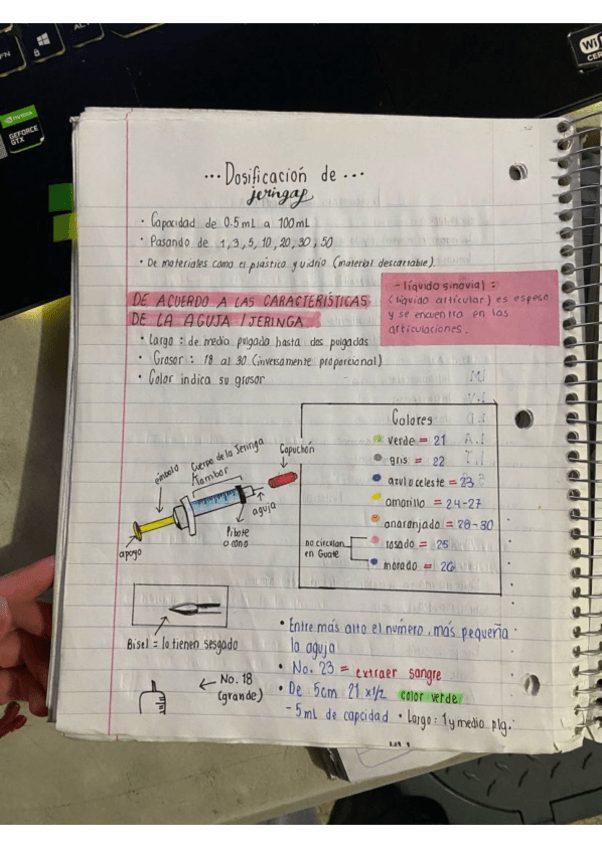 ...Dosificación de...
jeringas
• Capacidad de 0.5mL a 100mL
• Pasando de 1, 3, 5, 10, 20, 30, 50
• De materiales como el plástico y vidrio (material descartable)
- líquido sinovial:
(líquido artícular) es espeso
y se encuentra en las
articulaciones.
DE ACUERDO A LAS CARACTERÍSTICAS
DE LA AGUJA / JERINGA
• Largo: de media pulgada hasta dos pulgadas
• Grosor: 18 al 30 (inversamente proporcional)
• Color indica su grosor
Colores
verde = 21
gris = 22
azul o celeste = 23
amarillo = 24-27
anaranjado = 28-30
no circulan
en Guate
rosado = 25
morado = 26
émbolo
Cuerpo de la Jeringa
/tambor
Capuchón
aguja
Pibote
o cono
apoyo
Bisel = lo tienen sesgado
← No. 18
(grande)
• Entre más alto el número, más pequeña
la aguja
• No. 23 = extraer sangre
• De 5cm 21 x1/2 color verde
- 5mL de capcidad • Largo: 1 y medio plg.
NVIDIA
GEFORCE
GTX